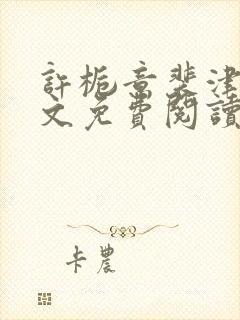 許梔音裴津
文免費閱讀
卡農